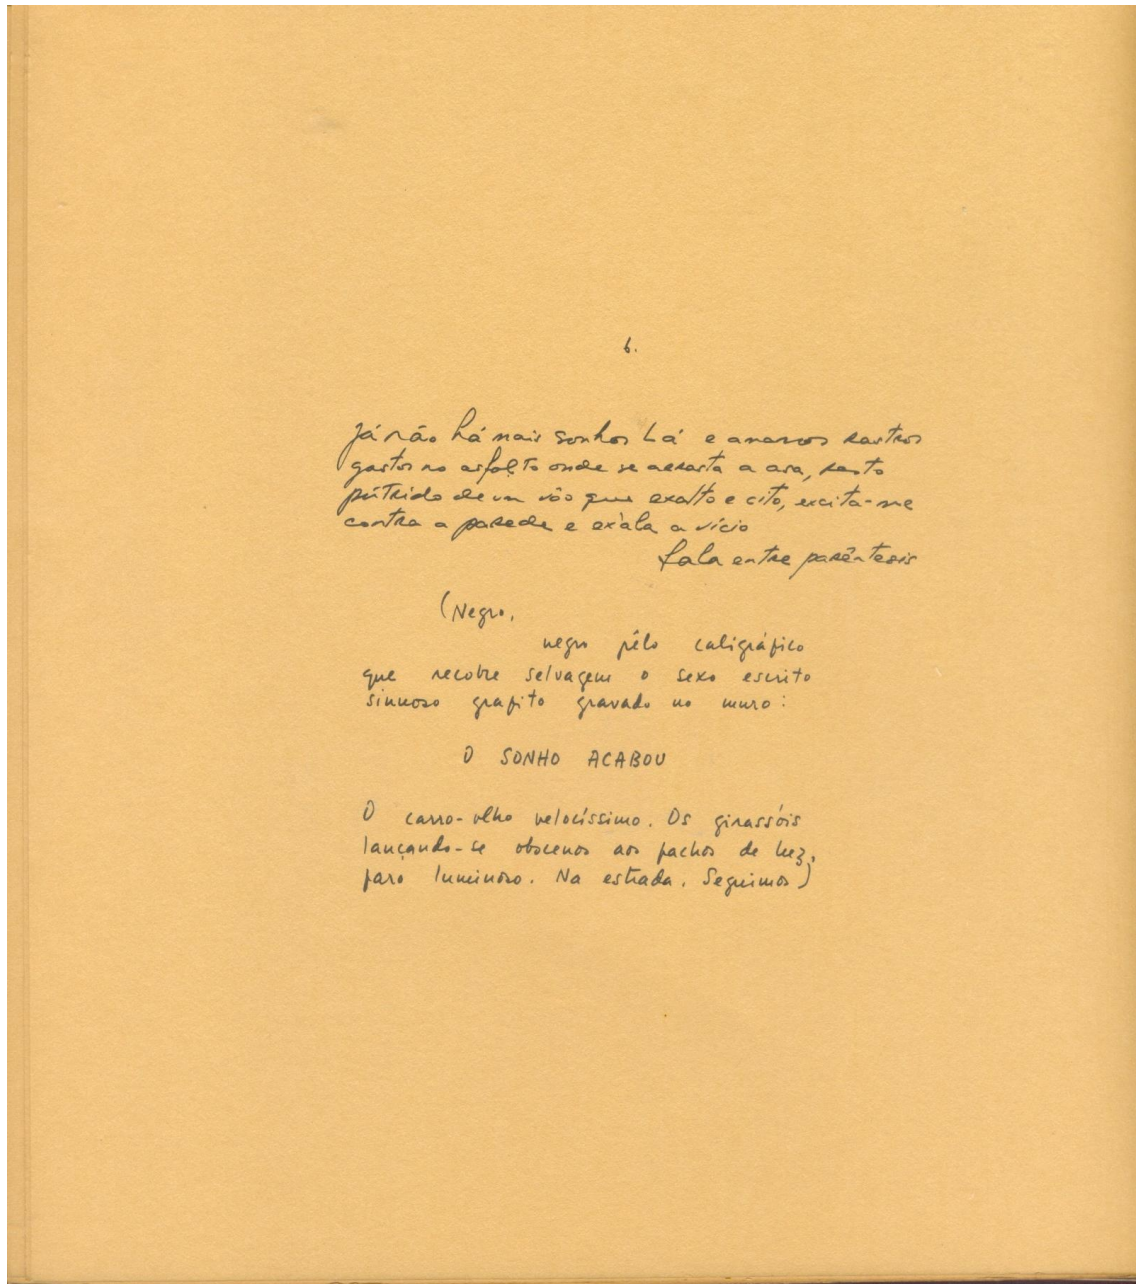 6.
Já não há mais sonhos Lá e amamos rastros
gastos no asfalto onde se arrasta a asa, resto
pútrido de um vôo que exalto e cito, excita-me
contra a parede e exala a vício
fala entre parêntesis
(Negro,
negro pêlo caligráfico
que recobre selvagem o sexo escrito
sinuoso grafito gravado no muro:
O SONHO ACABOU
O carro-olho velocíssimo. Os girassóis
lançando-se obscenos aos fachos de luz,
faro luminoso. Na estrada. Seguimos)